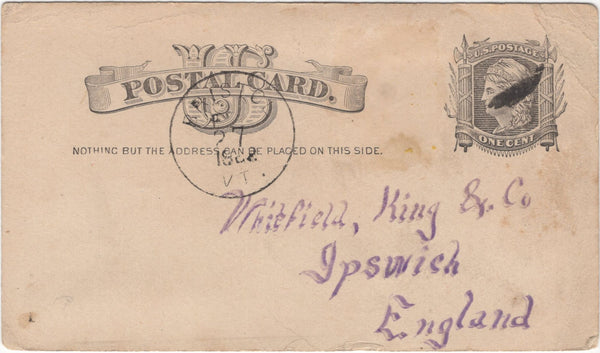 U.S. POSTAGE
US
POSTAL CARD.
27
1882
VT.
NOTHING BUT THE ADDRESS CAN BE PLACED ON THIS SIDE.
ONE CENT
Whitfield, King & Co
Ipswich
England